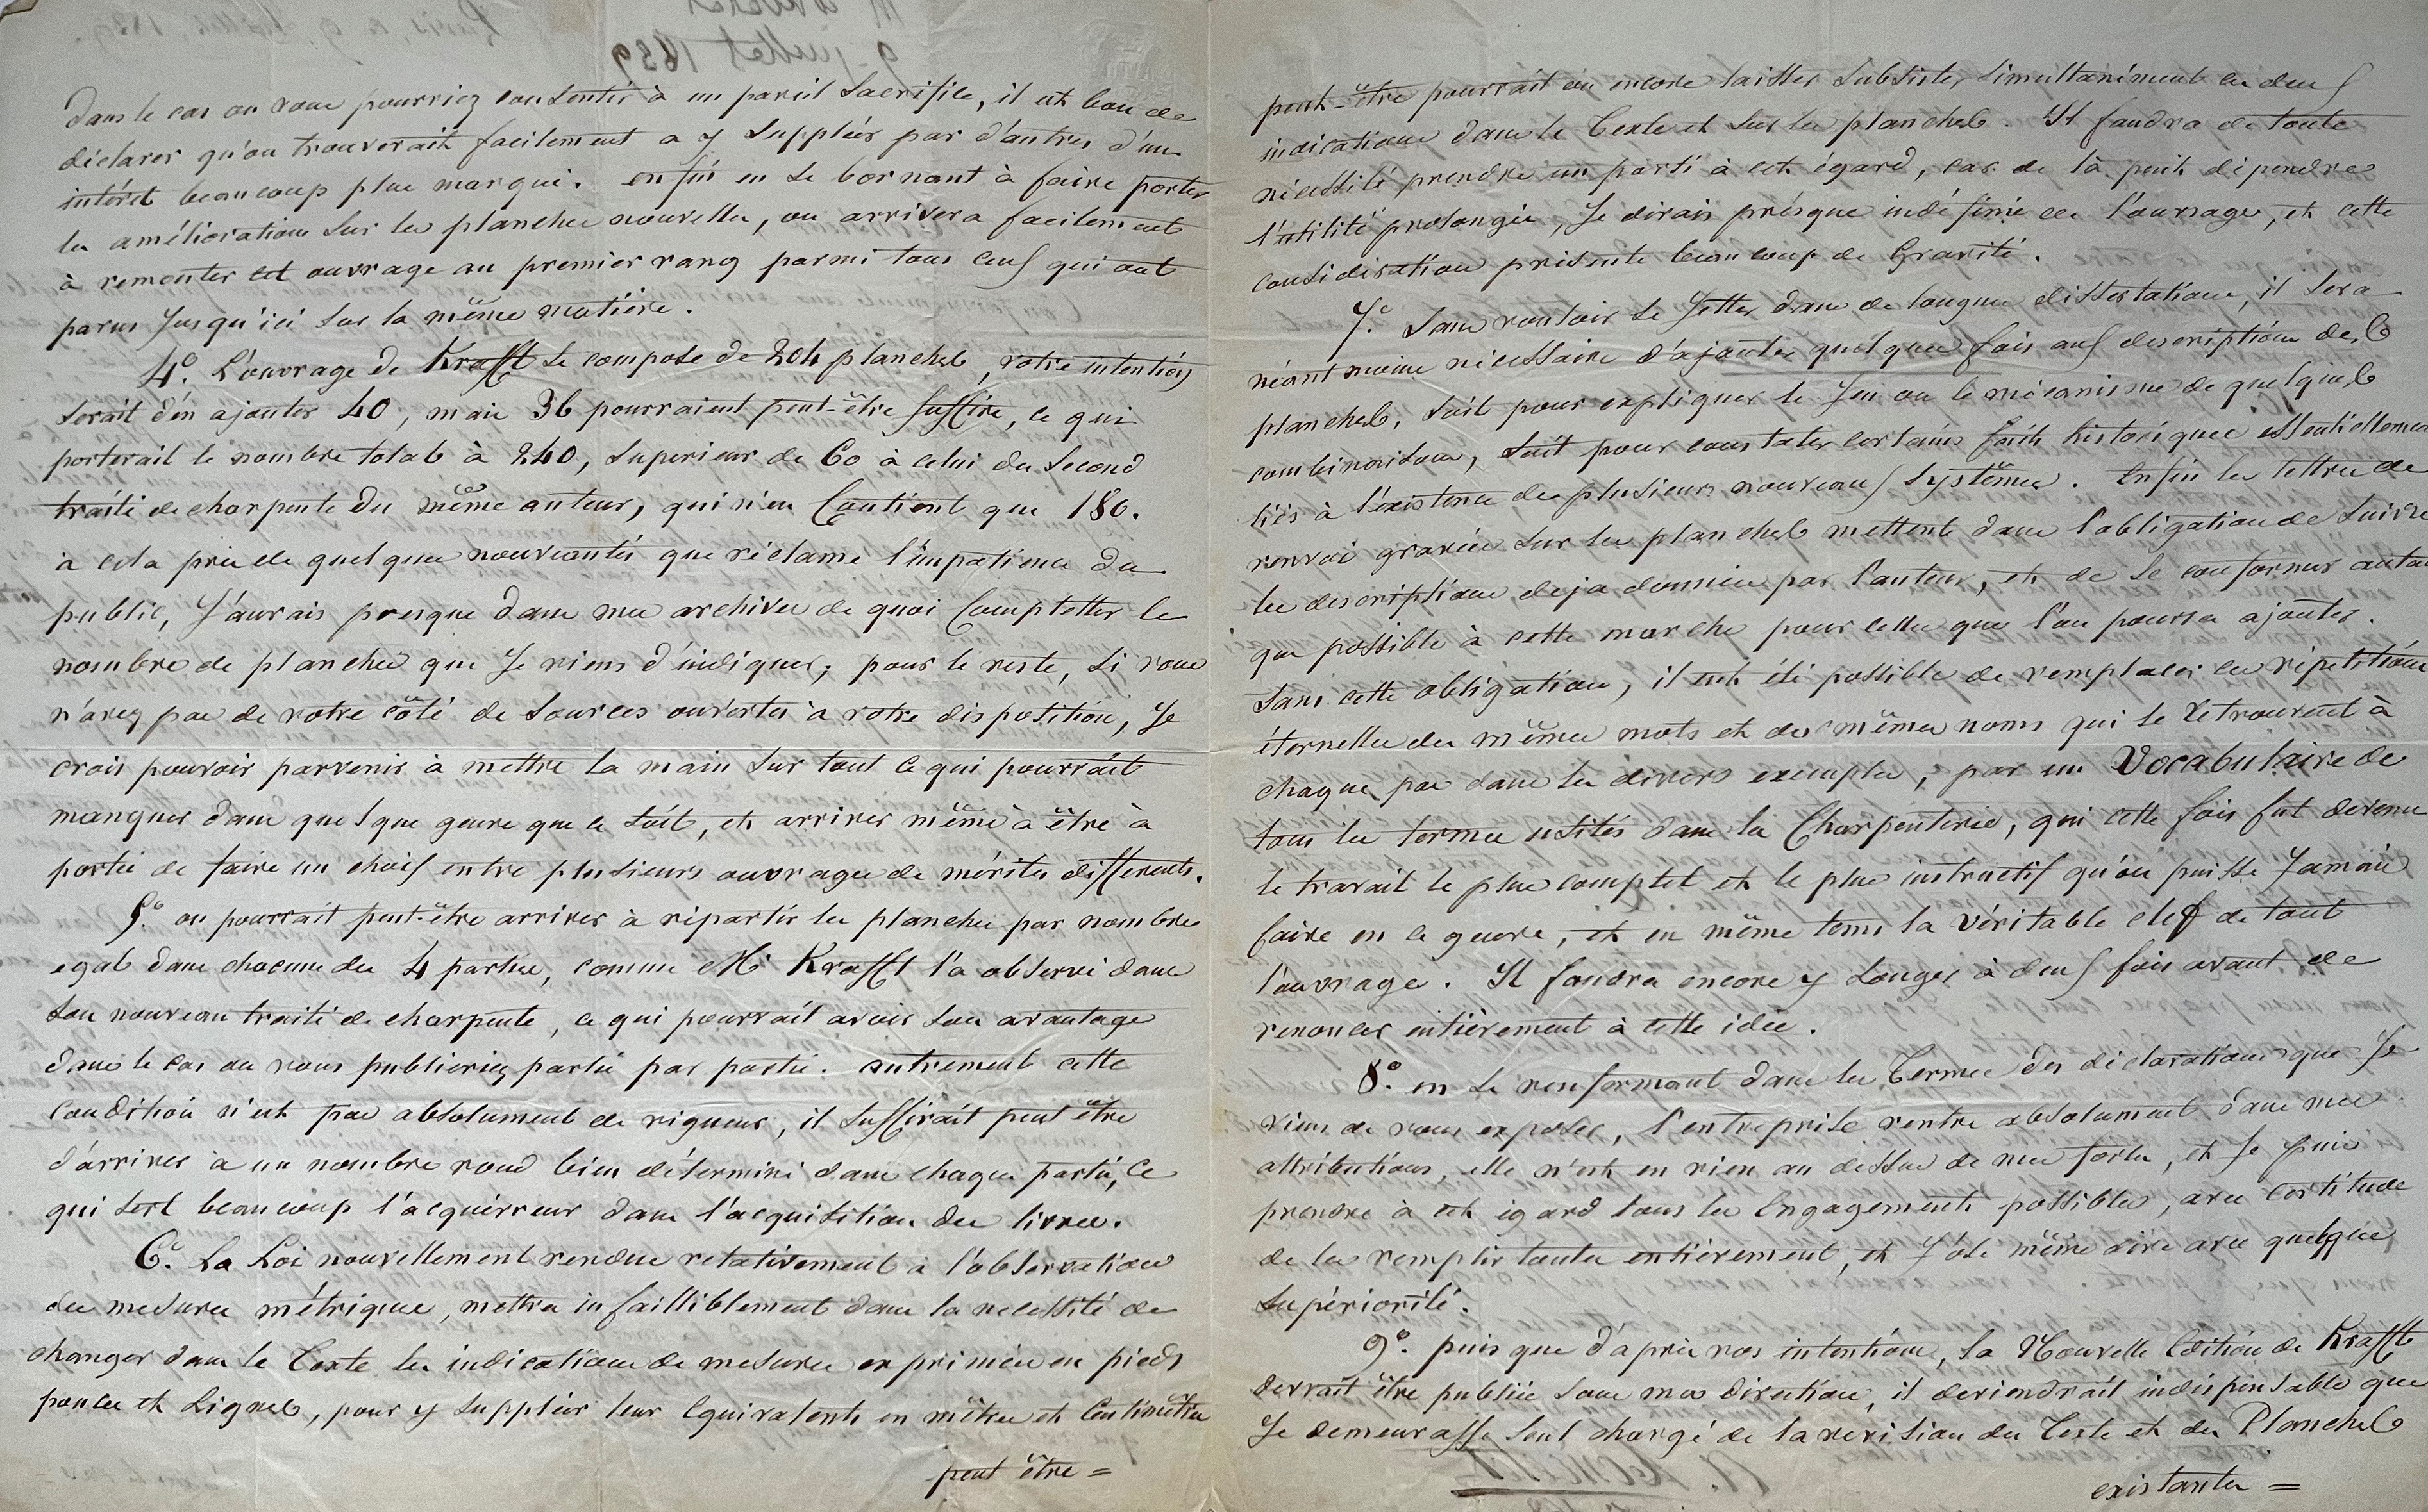 dans le cas où vous pourriez consentir à un pareil sacrifice, il est bon de
déclarer qu'on trouverait facilement a y suppléer par d'autres d'un
intérêt beaucoup plus marqué. enfin en se bornant à faire porter
les améliorations sur les planches nouvelles, on arrivera facilement
à remonter cet ouvrage au premier rang parmi tous ceux qui ont
parus jusqu'ici sur la même matière.
4.° L'ouvrage de Krafft se compose de 204 planches, votre intention
serait d'en ajouter 40, mais 36 pourraient peut-être suffire, ce qui
porterait le nombre total à 240, supérieur de 60 à celui du second
traité de charpente du même auteur, qui n'en Contient que 180.
à cela près de quelques nouveautés que réclame l'impatience du
public, J'aurais presque dans mes archives de quoi Completter le
nombre de planches que Je viens d'indiquer; pour le reste, si vous
n'avez pas de votre côté de sources ouvertes à votre disposition, Je
crois pouvoir parvenir à mettre la main sur tout ce qui pourrait
manquer dans quelque genre que ce soit, et arriver même à être à
portée de faire un choix entre plusieurs ouvrages de mérites différents.
5.° on pourrait peut-être arriver à répartir les planches par nombre
egal dans chacune des 4 parties, comme Mr Krafft l'a observé dans
son nouveau traité de charpente, ce qui pourrait avoir son avantage
dans le cas où vous publieriez partie par partie. autrement cette
condition n'est pas absolument de rigueur, il suffirait peut être
d'arriver à un nombre rond bien déterminé dans chaque partie, ce
qui sert beaucoup l'acquérreur dans l'acquisition des livres.
6.° La Loi nouvellement rendue relativement à l'observation
des mesures métriques, mettra infailliblement dans la necessité de
changer dans le Texte les indications de mesures exprimées en pieds
pouces et Lignes, pour y suppléer leur Equivalents en mètres et Centimètres
peut être =
peut-être pourrait on encore laisser subsister simultanément les deux
indications dans le Texte et sur les planches. Il faudra de toute
nécessité prendre un parti à cet égard, car de là peut dépendre
l'utilité prolongée, Je dirais présque indéfinie de l'ouvrage, et cette
considération présente beaucoup de Gravité.
7.° Sans vouloir se Jetter dans de longues dissertations, il sera
néantmoins nécessaire d'ajouter quelques fois aux descriptions des
planches, soit pour expliquer le Jeu ou le mécanisme de quelques
combinaisons, soit pour constater certains faits historiques essentiellement
liés à l'existence de plusieurs nouveaux systêmes. Enfin les lettres de
renvoi gravées sur les planches mettent dans l'obligation de suivre
les descriptions deja données par l'auteur, et de se conformer autant
que possible à cette marche pour celles que l'on pourra ajouter.
Sans cette obligation, il eut été possible de remplacer les répétitions
éternelles des mêmes mots et des mêmes noms qui se retrouvent à
chaque pas dans les divers exemples, par un Vocabulaire de
tous les termes usités dans la Charpenterie, qui cette fois fut devenu
le travail le plus complet et le plus instructif qu'on puisse Jamais
faire en ce genre, et en même tems la véritable clef de tout
l'ouvrage. Il faudra encore y songer à deux fois avant de
renoncer entièrement à cette idée.
8.° en se renfermant dans les Termes des déclarations que Je
viens de vous exposer, l'entreprise rentre absolument dans mes
attributions, elle n'est en rien au dessus de mes forces, et Je puis
prendre à cet égard tous les Engagements possibles, avec certitude
de les remplir toutes entièrement, et J'ose même dire avec quelque
supériorité.
9.° puis que d'après vos intentions, la Nouvelle Edition de Krafft
devrait être publiée sous ma direction, il deviendrait indispensable que
Je demeurasse seul chargé de la révision du Texte et des Planches
existantes =